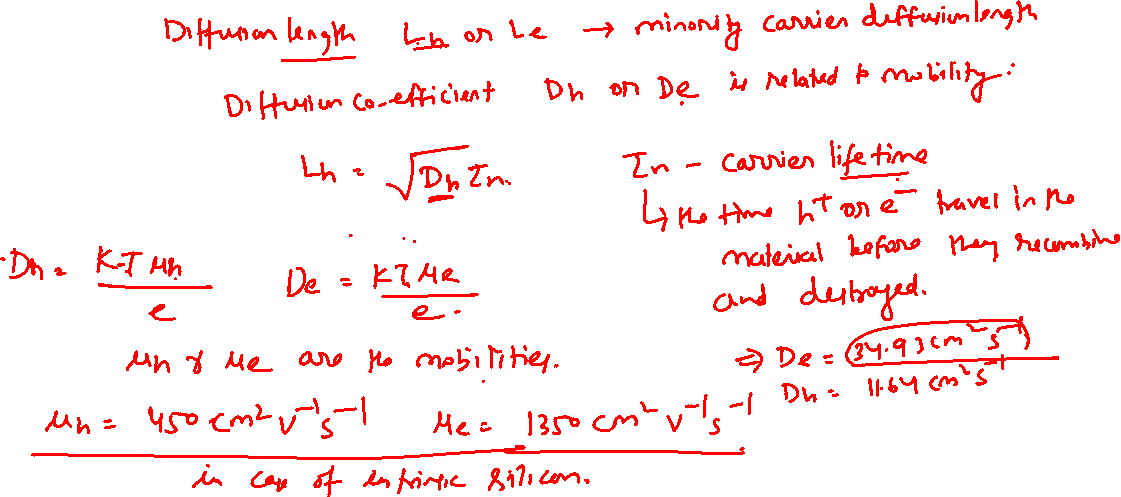 Diffusion length Lh or Le → minority carrier diffusion length
Diffusion co-efficient Dh or De is related to mobility.
Lh = √Dh τn.
τn - carrier life time
↳ the time h+ or e- travel in the
material before they recombine
and destroyed.
Dh = KT μh / e
De = KT μe / e.
μh & μe are the mobilities.
⇒ De = 34.93 cm² s⁻¹
Dh = 11.64 cm² s⁻¹
μh = 450 cm² v⁻¹ s⁻¹ μe = 1350 cm² v⁻¹ s⁻¹
in case of intrinsic silicon.